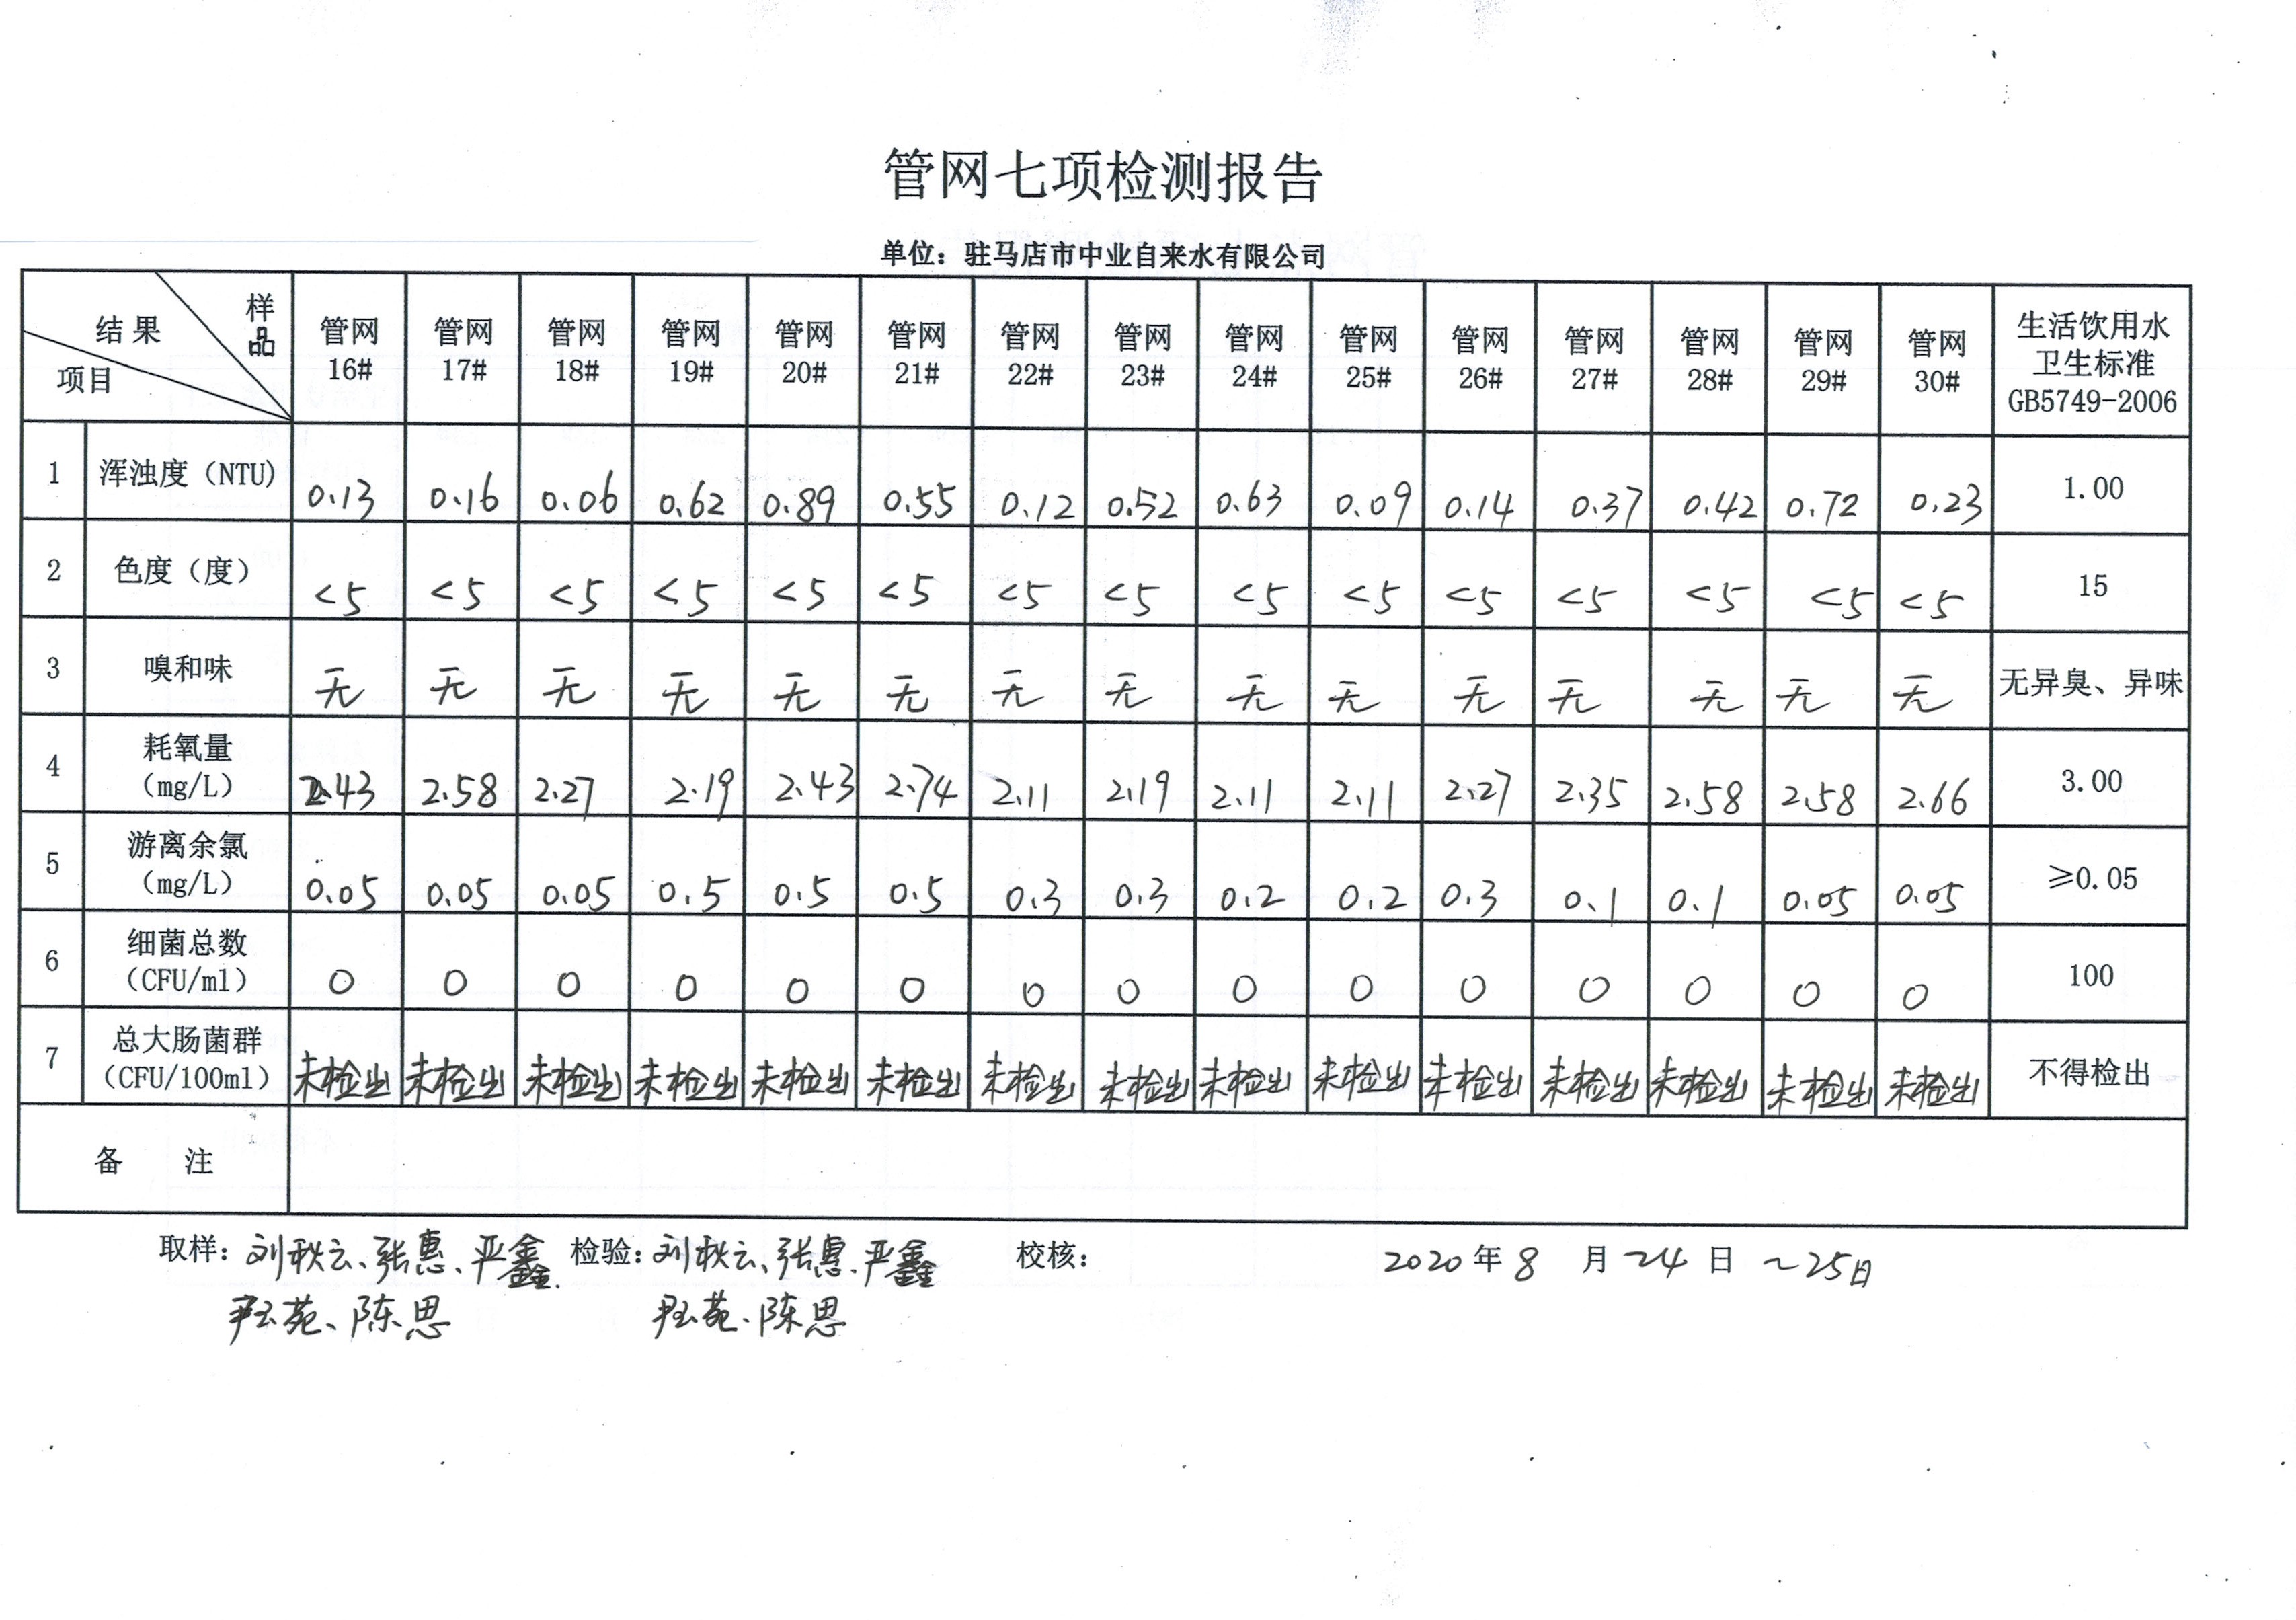 管网七项检测报告
单位：驻马店市中业自来水有限公司
结果 样品 项目 管网16# 管网17# 管网18# 管网19# 管网20# 管网21# 管网22# 管网23# 管网24# 管网25# 管网26# 管网27# 管网28# 管网29# 管网30# 生活饮用水卫生标准GB5749-2006
1 浑浊度（NTU) 0.13 0.16 0.06 0.62 0.89 0.55 0.12 0.52 0.63 0.09 0.14 0.37 0.42 0.72 0.23 1.00
2 色度（度） <5 <5 <5 <5 <5 <5 <5 <5 <5 <5 <5 <5 <5 <5 <5 15
3 嗅和味 无 无 无 无 无 无 无 无 无 无 无 无 无 无 无 无异臭、异味
4 耗氧量（mg/L） 2.43 2.58 2.27 2.19 2.43 2.74 2.11 2.19 2.11 2.11 2.27 2.35 2.58 2.58 2.66 3.00
5 游离余氯（mg/L） 0.05 0.05 0.05 0.5 0.5 0.5 0.3 0.3 0.2 0.2 0.3 0.1 0.1 0.05 0.05 ≥0.05
6 细菌总数（CFU/ml） 0 0 0 0 0 0 0 0 0 0 0 0 0 0 0 100
7 总大肠菌群（CFU/100ml） 未检出 未检出 未检出 未检出 未检出 未检出 未检出 未检出 未检出 未检出 未检出 未检出 未检出 未检出 未检出 不得检出
备 注
取样：刘秋云、张惠、严鑫 检验：刘秋云、张惠、严鑫 校核： 2020年8月24日～25日
陈思 陈思